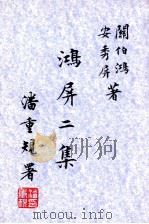 關伯鴻
安秀屏 著
鴻屏二集
潘重規署